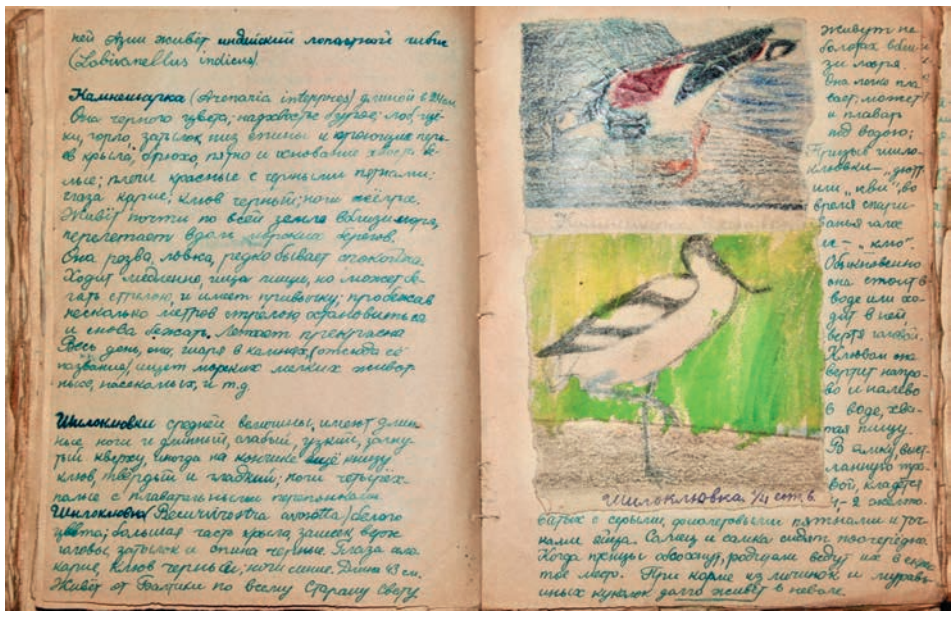 ней Азии живёт индийский лопастной чибис
(Lobivanellus indicus).
Камнешарка (Arenaria interpres) длиной в 24 см.
Она черного цвета; надхвостье бурое; лоб, ще-
ки, горло, затылок, низ спины и кроющие перь-
ев крыла, брюхо, пятно и основание хвоста бе-
лые; плечи красные с черными пятнами;
глаза карие; клюв черный; ноги жёлтые.
Живёт почти по всей земле вблизи моря,
перелетает вдоль морских берегов.
Она резва, ловка, редко бывает спокойна.
Ходит медленно, ища пищу, но может бе-
гать стрелою, и имеет привычку; пробежав
несколько метров стрелою, остановиться
и снова бежать. Летает прекрасно
Весь день, она, шаря в камнях, (отсюда её
название), ищет морских мелких живот-
ных, насекомых, и т.д.
Шилоклювки средней величины, имеют длин-
ные ноги и длинный, слабый, узкий, загну-
тый кверху, иногда на кончике ещё книзу
клюв, твёрдый и гладкий; ноги четырёх-
палые с плавательными перепонками.
Шилоклювка (Recurvirostra avosetta) белого
цвета; большая часть крыла, зашеек, верх
головы, затылок и спина черные. Глаза
карие, клюв черный; ноги синие. Длина 43 см.
Живёт от Балтики по всему Старому Свету
Живут не
болотах вбли-
зи моря.
Она легко пла-
вает; может
и плавать
под водою;
Призыв шило-
клювки - „дютт"
или „кви", во
время спари-
вания голос
и - „клю".
Обыкновенно
она стоит в
воде или хо-
дит в ней
вертя головой.
Клювом она
вертит напра-
во и налево
в воде, хва-
тая пищу.
В ямку, выс-
ланную тра-
вой, кладется
4-2 желто-
Шилоклювка. 1/4 ест. в.
ватых с серыми, фиолетовыми пятнами и точ-
ками яйца. Самец и самка сидят поочередно.
Когда птенцы обсохнут, родители ведут их в укры-
тое место. При корме из личинок и муравь-
иных куколок долго живёт в неволе.